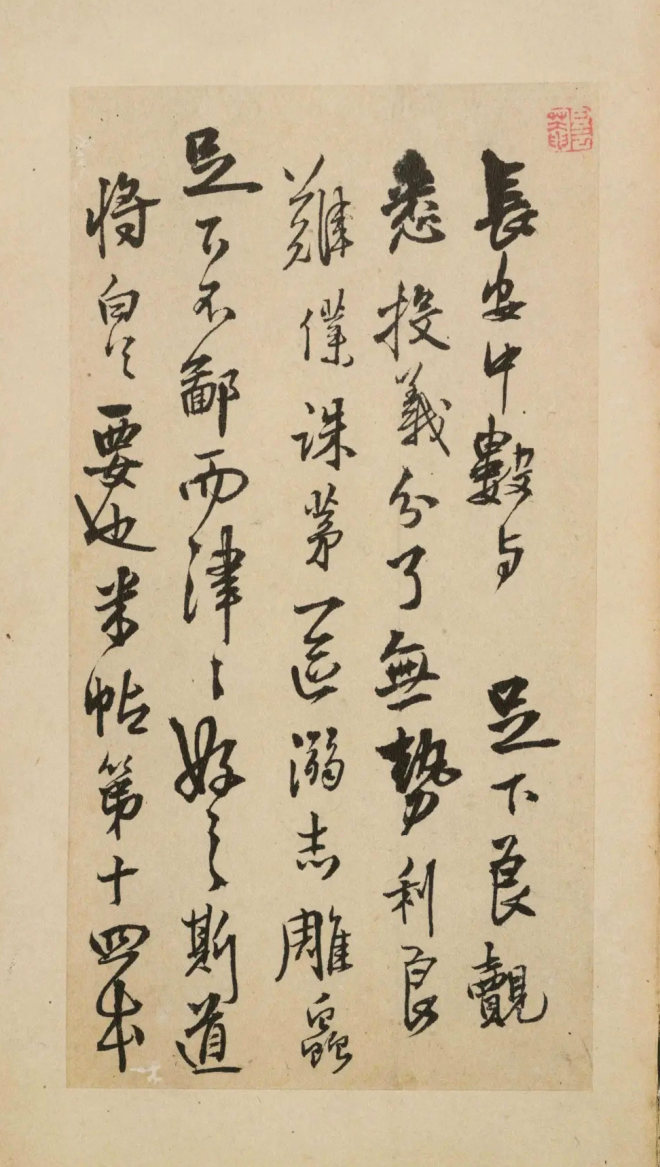 長安中數与 足下良覿
悉投義分了無勢利良
難僕誅茅一區溺志雕蟲
足下不鄙而津〻好之斯道
將自足要也米帖第十四本